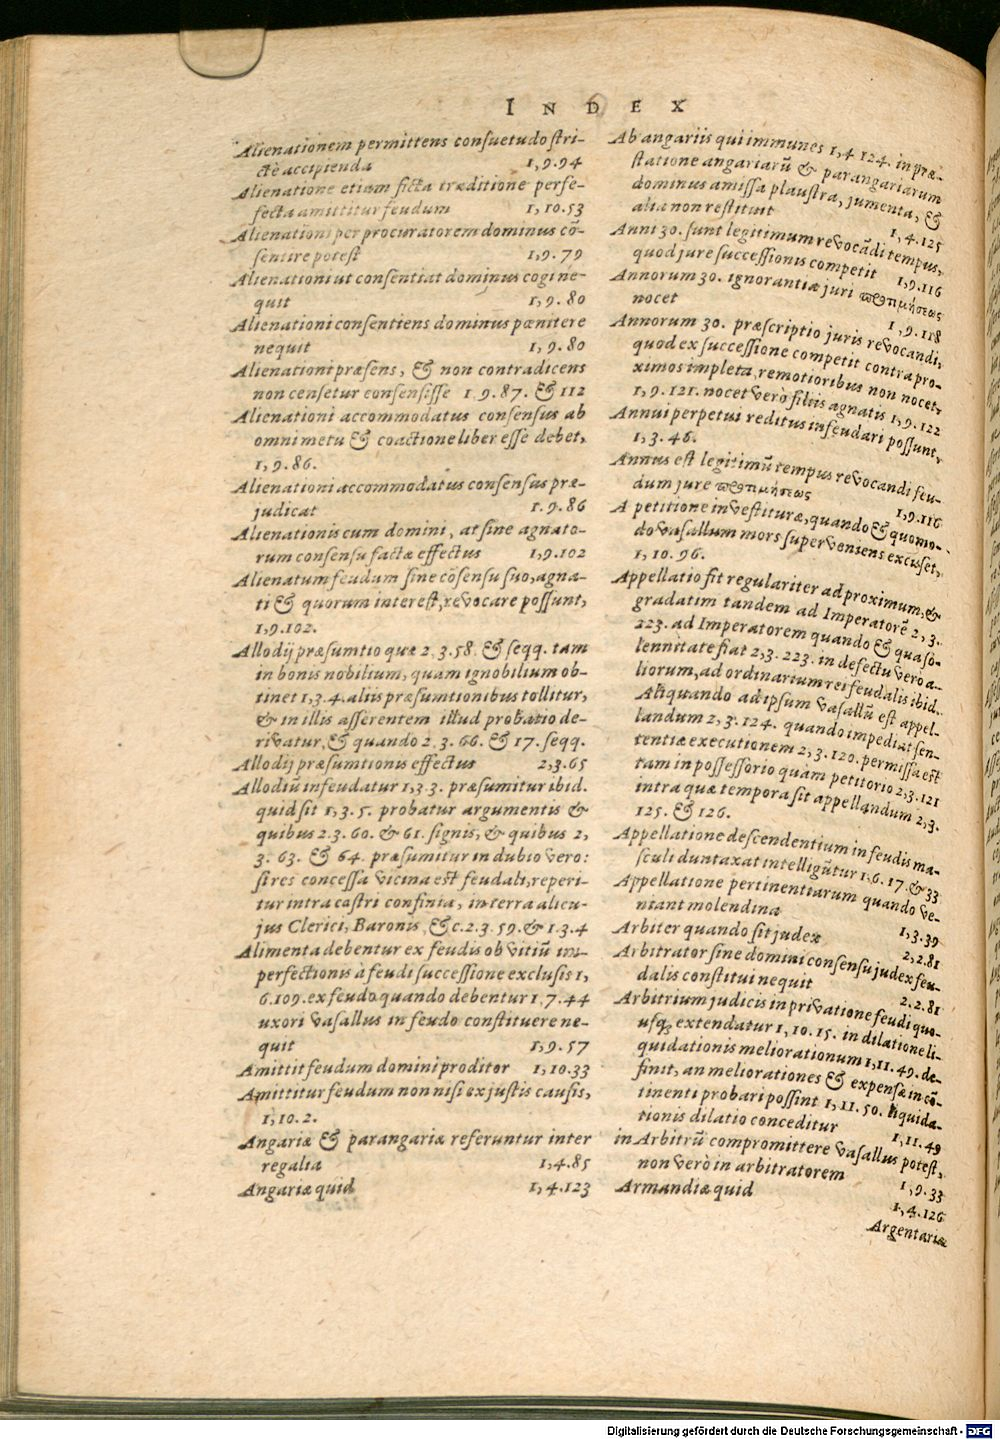 INDEX
Alienationem permittens consuetudo stri-
ctè accipienda 1,9.94
Alienatione etiam ficta træditione perfe-
fecta amittitur feudum 1,10.53
Alienationi per procuratorem dominus cõ-
sentire potest 1,9.79
Alienationi ut consentiat dominus cogi ne-
quit 1,9.80
Alienationi consentiens dominus pœnitere
nequit 1,9.80
Alienationi præsens, & non contradicens
non censetur consensisse 1.9.87. & 112
Alienationi accommodatus consensus ab
omni metu & coactione liber esse debet,
1,9.86.
Alienationi accommodatus consensus præ-
judicat 1.9.86
Alienationis cum domini, at sine agnato-
rum consensu factæ effectus 1,9.102
Alienatum feudum sine cõsensu suo, agna-
ti & quorum interest, revocare possunt,
1,9.102.
Allodij præsumtio quæ 2.3.58. & seqq. tam
in bonis nobilium, quam ignobilium ob-
tinet 1,3.4. aliis præsumtionibus tollitur,
& in illis asserentem illud probatio de-
rivatur, & quando 2.3.66. & 17. seqq.
Allodij præsumtionis effectus 2,3.65
Allodiũ infeudatur 1,3.3. præsumitur ibid.
quid sit 1,3.5. probatur argumentis &
quibus 2.3.60. & 61. signis, & quibus 2,
3.63. & 64. præsumitur in dubio vero:
si res concessa vicina est feudali, reperi-
tur intra castri confinia, in terra alicu-
jus Clerici, Baronis, &c. 2.3.59. & 1.3.4
Alimenta debentur ex feudis ob vitiũ im-
perfectionis à feudi successione exclusis 1,
6.109. ex feudo quando debentur 1.7.44
uxori vasallus in feudo constituere ne-
quit 1,9.57
Amittit feudum domini proditor 1,10.33
Amittitur feudum non nisi ex justis causis,
1,10.2.
Angariæ & parangariæ referuntur inter
regalia 1,4.85
Angariæ quid 1,4.123
Ab angariis qui immunes 1,4 124. in præ-
statione angariarũ & parangariarum
dominus amissa plaustra, jumenta, &
alia non restituit 1,4.125
Anni 30. sunt legitimum revocãdi tempus,
quod jure successionis competit 1,9.116
Annorum 30. ignorantiæ juri προτιμήσεως
nocet 1,9.118
Annorum 30. præscriptio juris revocandi,
quod ex successione competit contra pro-
ximos impleta, remotioribus non nocet,
1,9.121. nocet verò filiis agnatis 1,9.122
Annui perpetui reditus infeudari possunt,
1,3.46.
Annus est legitimũ tempus revocandi feu-
dum jure προτιμήσεως 1,9.116
A petitione investituræ, quando & quomo-
do vasallum mors superveniens excuset,
1,10.96.
Appellatio fit regulariter ad proximum, &
gradatim tandem ad Imperatorẽ 2,3.
223. ad Imperatorem quando & qua sò-
lennitate fiat 2,3.223. in defectu verò a-
liorum, ad ordinarium rei feudalis ibid.
Aliquando ad ipsum vasallũ est appel-
landum 2,3.124. quando impediat sen-
tentiæ executionem 2,3.120. permissa est
tam in possessorio quàm petitorio 2,3.121
intra quæ tempora sit appellandum 2,3.
125. & 126.
Appellatione descendentium in feudis ma-
sculi duntaxat intelligũtur 1.6.17. & 33
Appellatione pertinentiarum quando ve-
niant molendina 1,3.39
Arbiter quando sit judex 2,2.81
Arbitrator sine domini consensu judex feu-
dalis constitui nequit 2.2.81
Arbitrium judicis in privatione feudi quo-
usq; extendatur 1,10.15. in dilatione li-
quidationis meliorationum 1,11.49. de-
finit, an meliorationes & expensæ in cõ-
tinenti probari possint 1,11.50. liquida-
tionis dilatio conceditur 1,11.49
in Arbitrũ compromittere vasallus potest,
non verò in arbitratorem 1,9.33
Armandiæ quid 1,4.126
Argentariæ
Digitalisierung gefördert durch die Deutsche Forschungsgemeinschaft - DFG